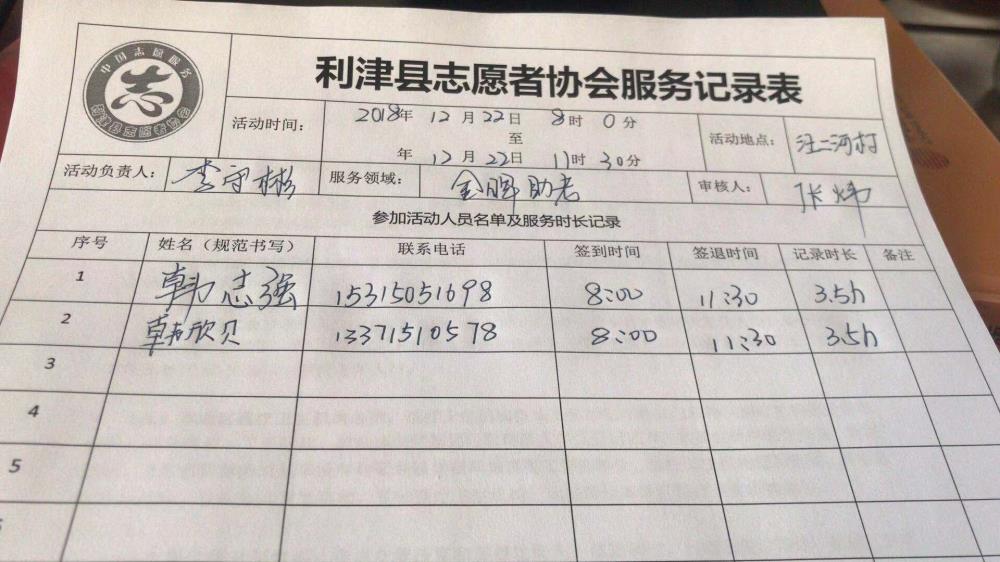 中国志愿服务
志
利津县志愿者协会
利津县志愿者协会服务记录表
活动时间： 2018年 12月 22日 8时 0分
至
年 12月 22日 11时 30分
活动地点： 汪二河村
活动负责人： 李守彬 服务领域： 金晖助老 审核人： 张炜
参加活动人员名单及服务时长记录
序号 姓名（规范书写） 联系电话 签到时间 签退时间 记录时长 备注
1 韩志强 15315051698 8:00 11:30 3.5h
2 韩欣贝 13371510578 8:00 11:30 3.5h
3
4
5